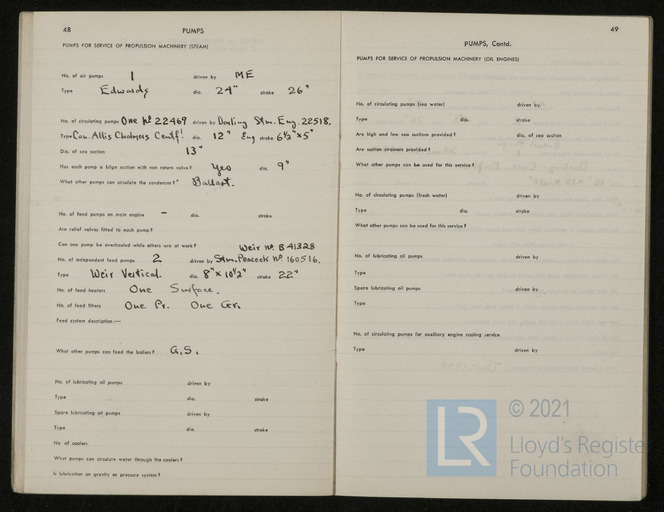 48 PUMPS
PUMPS FOR SERVICE OF PROPULSION MACHINERY (STEAM)
No. of air pumps 1 driven by ME
Type Edwards dia. 24" stroke 26"
No. of circulating pumps One No 22469 driven by Dooling Stm. Eng. 22518.
Type Can. Allis Chalmers Centfl dia. 12" Eng stroke 6½" x 5"
Dia. of sea suction 13"
Has each pump a bilge suction with non return valve? Yes dia. 9"
What other pumps can circulate the condenser? Ballast.
No. of feed pumps on main engine – dia. stroke
Are relief valves fitted to each pump?
Can one pump be overhauled while others are at work? Weir No. B 41328
No. of independent feed pumps 2 driven by Stm. Peacock No. 160516.
Type Weir Vertical. dia. 8" x 10½" stroke 22"
No. of feed heaters One Surface.
No. of feed filters One Pr. One Gr.
Feed system description:—
What other pumps can feed the boilers? G.S.
No. of lubricating oil pumps driven by
Type dia. stroke
Spare lubricating oil pumps driven by
Type dia. stroke
No of coolers
What pumps can circulate water through the coolers?
Is lubrication on gravity or pressure system?
49
PUMPS, Contd.
PUMPS FOR SERVICE OF PROPULSION MACHINERY (OIL ENGINES)
No. of circulating pumps (sea water) driven by
Type dia. stroke
Are high and low sea suctions provided? dia. of sea suction
Are suction strainers provided?
What other pumps can be used for this service?
No. of circulating pumps (fresh water) driven by
Type dia. stroke
What other pumps can be used for this service?
No. of lubricating oil pumps driven by
Type
Spare lubricating oil pumps driven by
Type
No. of circulating pumps for auxiliary engine cooling service
Type driven by
LR © 2021
Lloyd's Register
Foundation